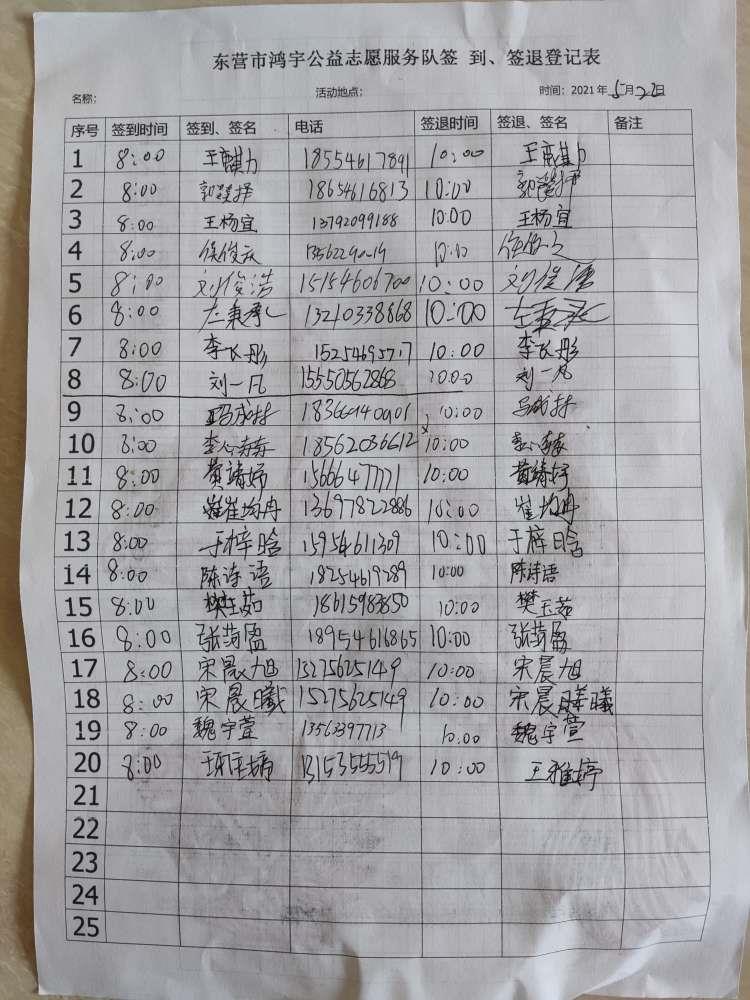 东营市鸿宇公益志愿服务队签 到、签退登记表
名称: 活动地点: 时间: 2021 年 5月22日
序号 签到时间 签到、签名 电话 签退时间 签退、签名 备注
1 8:00 18554617891 10:00
2 8:00 18654616813 10:00
3 8:00 王杨宜 13792099188 10:00 王杨宜
4 8:00 10:00
5 8:00 刘俊浩 15154606700 10:00 刘俊浩
6 8:00 左秉承 13210338868 10:00 左秉承
7 8:00 李飞彤 10:00 李飞彤
8 8:00 刘一凡 15550562868 10:00 刘一凡
9 8:00 10:00 马成林
10 8:00 18562036612 10:00
11 8:00 黄靖婷 10:00 黄靖婷
12 8:00 崔均冉 13697822886 10:00 崔均冉
13 8:00 于梓晗 15954611309 10:00 于梓晗
14 8:00 陈诗语 18254619289 10:00 陈诗语
15 8:00 樊玉茹 18615983850 10:00 樊玉茹
16 8:00 张菂盈 18954616865 10:00 张菂盈
17 8:00 宋晨旭 15275625149 10:00 宋晨旭
18 8:00 宋晨曦 15275625149 10:00 宋晨曦
19 8:00 魏宇萱 13563397713 10:00 魏宇萱
20 8:00 王雅婷 13153555519 10:00 王雅婷
21
22
23
24
25